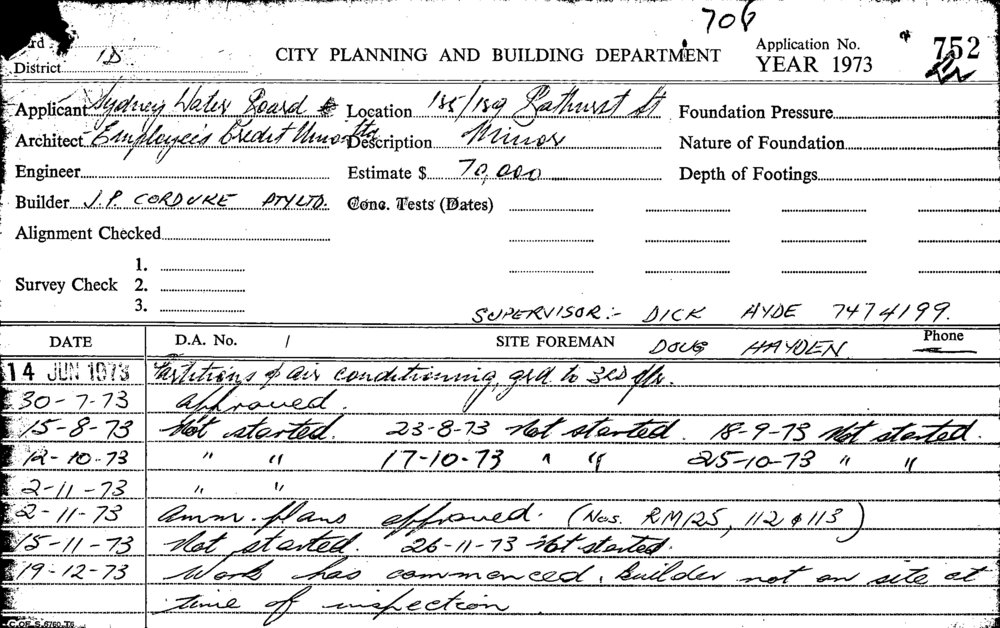 706
rd
District 1D CITY PLANNING AND BUILDING DEPARTMENT Application No. YEAR 1973 752
Applicant Sydney Water Board Location 155/159 Bathurst St Foundation Pressure
Architect Employee's Credit Union Description Minor Nature of Foundation
Engineer Estimate $ 70,000 Depth of Footings
Builder J.P. CORDUKE PTY LTD. Conc. Tests (Dates)
Alignment Checked
1.
Survey Check 2.
3.
SUPERVISOR:- DICK HYDE 7474199.
DATE D.A. No. / SITE FOREMAN DOUG HAYDEN Phone
14 JUN 1973 Partitions & air conditioning, grd to 3rd flr.
30-7-73 approved.
15-8-73 Not started. 23-8-73 Not started. 18-9-73 Not started.
12-10-73 " " 17-10-73 " " 25-10-73 " "
2-11-73 " "
2-11-73 Amm. plans approved. (Nos. RM125, 112 & 113)
15-11-73 Not started. 26-11-73 Not started.
19-12-73 Work has commenced, builder not on site at
time of inspection
C.OF S.6760.T6